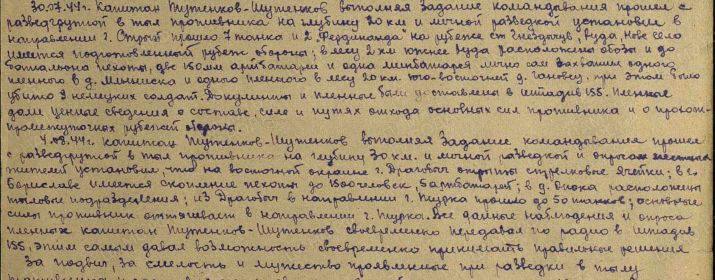 30.07.44г. капитан Шутенков-Шутенков выполняя задание командования прошел с
разведгруппой в тыл противника на глубину 20 км и личной разведкой установил в
направлении г. Стрый прошло 7 танков и 2 "Фердинанда" на рубеже ст Гнездычув, Руда, Нове село
имеется подготовленный рубеж обороны; в лесу 2 км южнее Руда расположены обозы и до
батальона пехоты, две 150 мм артбатареи и одна минбатарея лично сам захватил одного
пленного в д. и одного пленного в лесу 20 км юго-восточней д. при этом было
убито 3 немецких солдат. Документы и пленные были доставлены в штадив 155. Пленные
дали ценные сведения о составе, силе и путях отхода основных сил противника и о
промежуточных рубежей обороны.
4.08.44г. капитан Шутенков-Шутенков выполняя задание командования прошел
с разведгруппой в тыл противника на глубину 30 км. и личной разведкой и опросом
жителей установил, что на восточной окраине г. Драгобыч отрыты стрелковые ячейки; в г.
Бориславе имеется скопление пехоты до 1500 человек, 5 артбатарей; в д. расположены
тыловые подразделения; из Драгобыч в направлении г. Турка прошло до 50 танков; основные
силы противник оттягивает в направлении г. Турка. Все данные наблюдения и опроса
пленных капитан Шутенков-Шутенков своевременно передавал по радио в штадив
155, этим самым давал возможность своевременно принимать правильные решения
За подвиг, за смелость и мужество проявленные при разведке в тылу